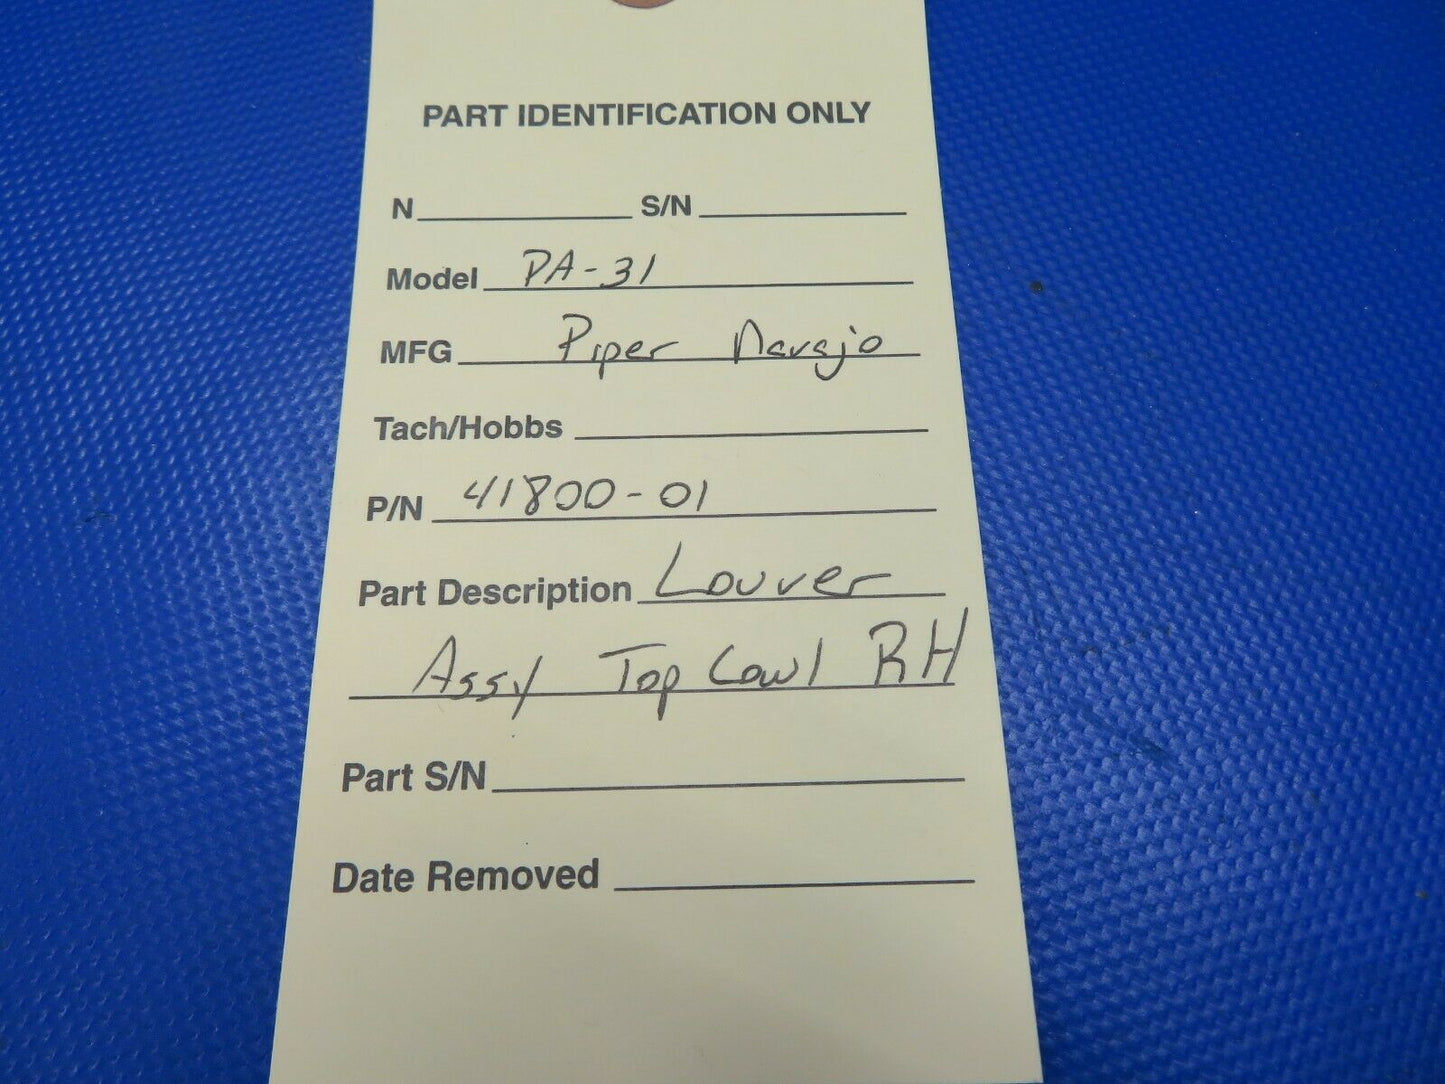 PART IDENTIFICATION ONLY
N S/N
Model PA-31
MFG Piper Navajo
Tach/Hobbs
P/N 41800-01
Part Description Louver
Assy Top Cowl RH
Part S/N
Date Removed